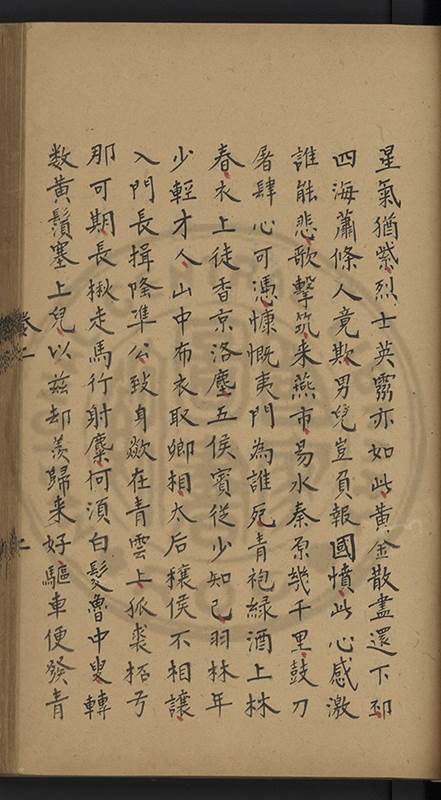 星氣猶紫烈士英靈亦如此黃金散盡還下邳
四海蕭條人竟欺男兒豈負報國憤此心感激
誰能悲歌擊筑来燕市易水秦原幾千里鼓刀
屠肆心可憑慷慨夷門為誰死青袍綠酒上林
春衣上徒香京洛塵五侯賓從少知己羽林年
少輕才人山中布衣取卿相太后穰侯不相讓
入門長揖隆準公致身欻在青雲上狐裘栝弓
那可期長楸走馬行射麋何須白髮魯中叟轉
数黃鬚塞上兒以兹却羨歸来好驅車便發青